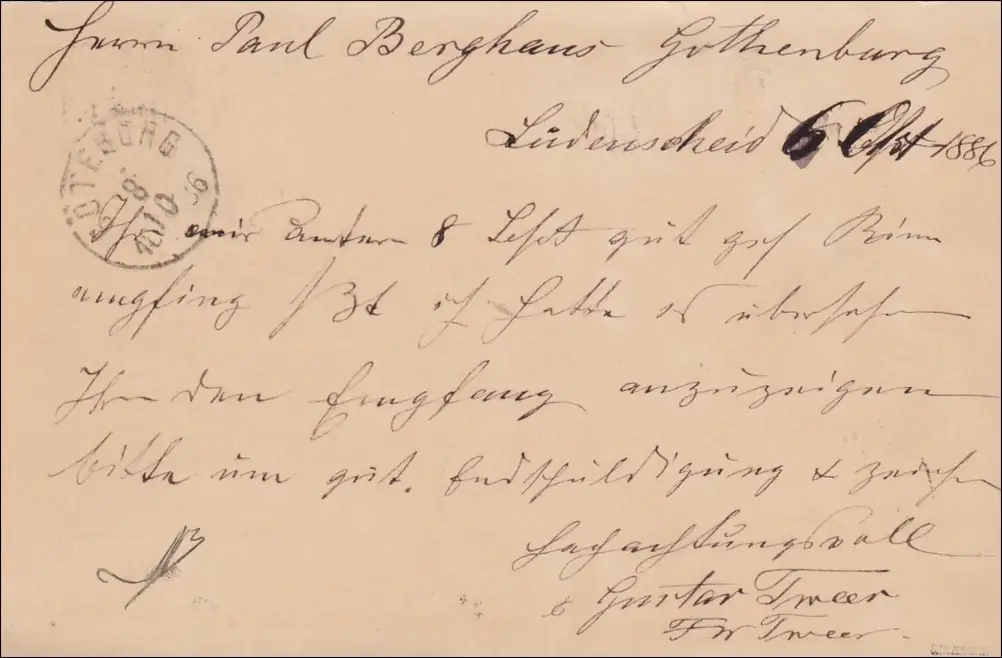 Herrn Paul Berghaus Gothenburg
Lüdenscheid 6 1886
GÖTEBORG
8 10
86
Ihr mir unterm 8 gut
empfing ich hatte es übersehen
Ihn den Empfang anzuzeigen
bitte um gut. Endschuldigung & zeichne
Hochachtungsvoll
Gustav Tweer
Fr Tweer